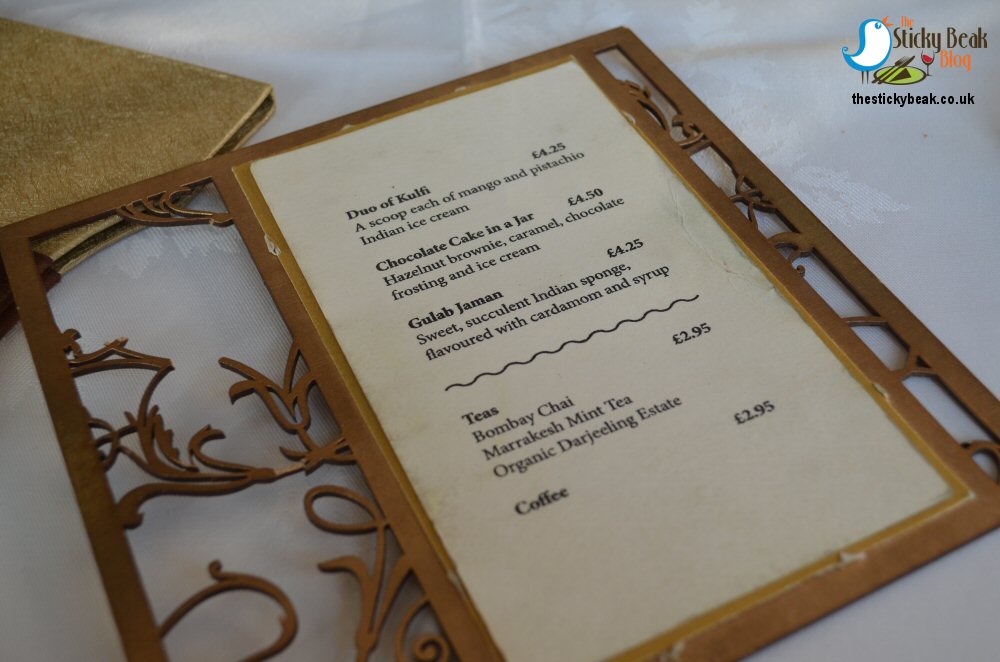 The
Sticky Beak
Blog
thestickybeak.co.uk
Duo of Kulfi £4.25
A scoop each of mango and pistachio
Indian ice cream
Chocolate Cake in a Jar £4.50
Hazelnut brownie, caramel, chocolate
frosting and ice cream
Gulab Jaman £4.25
Sweet, succulent Indian sponge,
flavoured with cardamom and syrup
Teas £2.95
Bombay Chai
Marrakesh Mint Tea
Organic Darjeeling Estate
Coffee £2.95